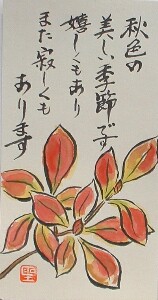 秋色の
美しい季節です
嬉しくもあり
また寂しくも
あります
聖